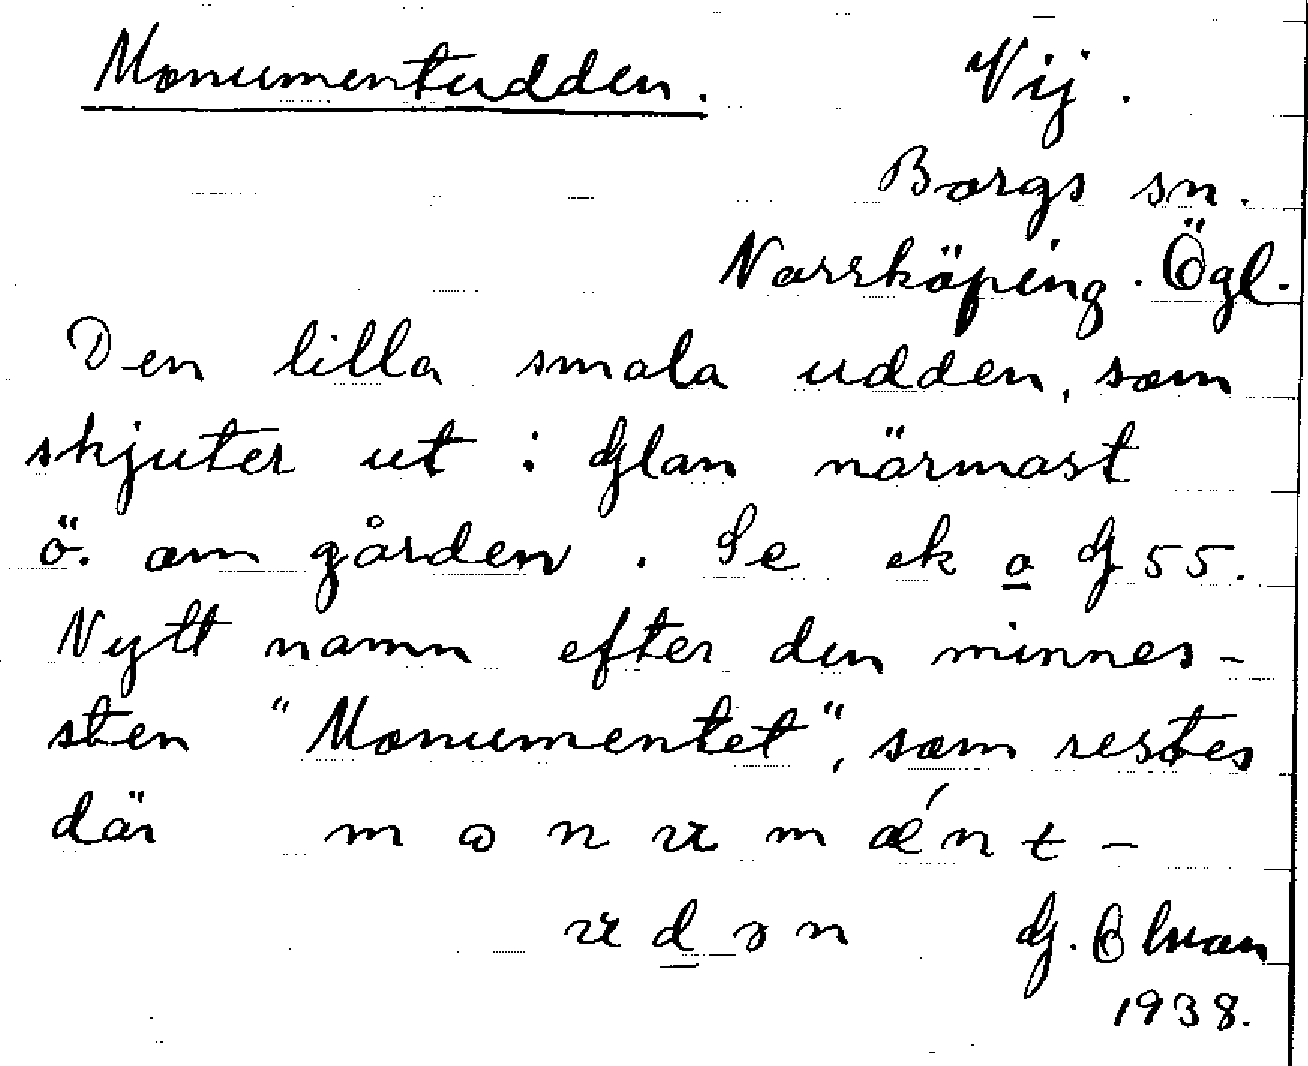 Monumentudden. Vij.
Borgs sn.
Norrköping. Ögl.
Den lilla smala udden, som
skjuter ut i Glan närmast
ö. om gården. Se ek a G 55.
Nytt namn efter den minnes-
sten "Monumentet", som restes
där m ɷ n u m ǽ n t -
u d ə n G.
1938.